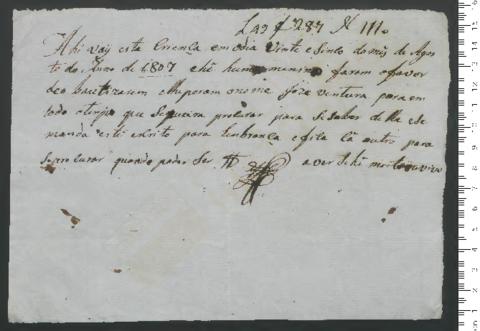 L 23 f 287 N 111.
Ahi vay esta Criença em o dia Vinte e Sinco do mes de Agos
to do Anno de 1807 e hê hum menino faram o favor
de o bautizarem e lhe poram o nome Joze Ventura para em
todo o tempo que Se queira procurar para Si Saber delle e Se
manda este escrito para lenbrança e fica cá outro para
Se procurar quando poder Ser a ver Se hê morto ou vivo